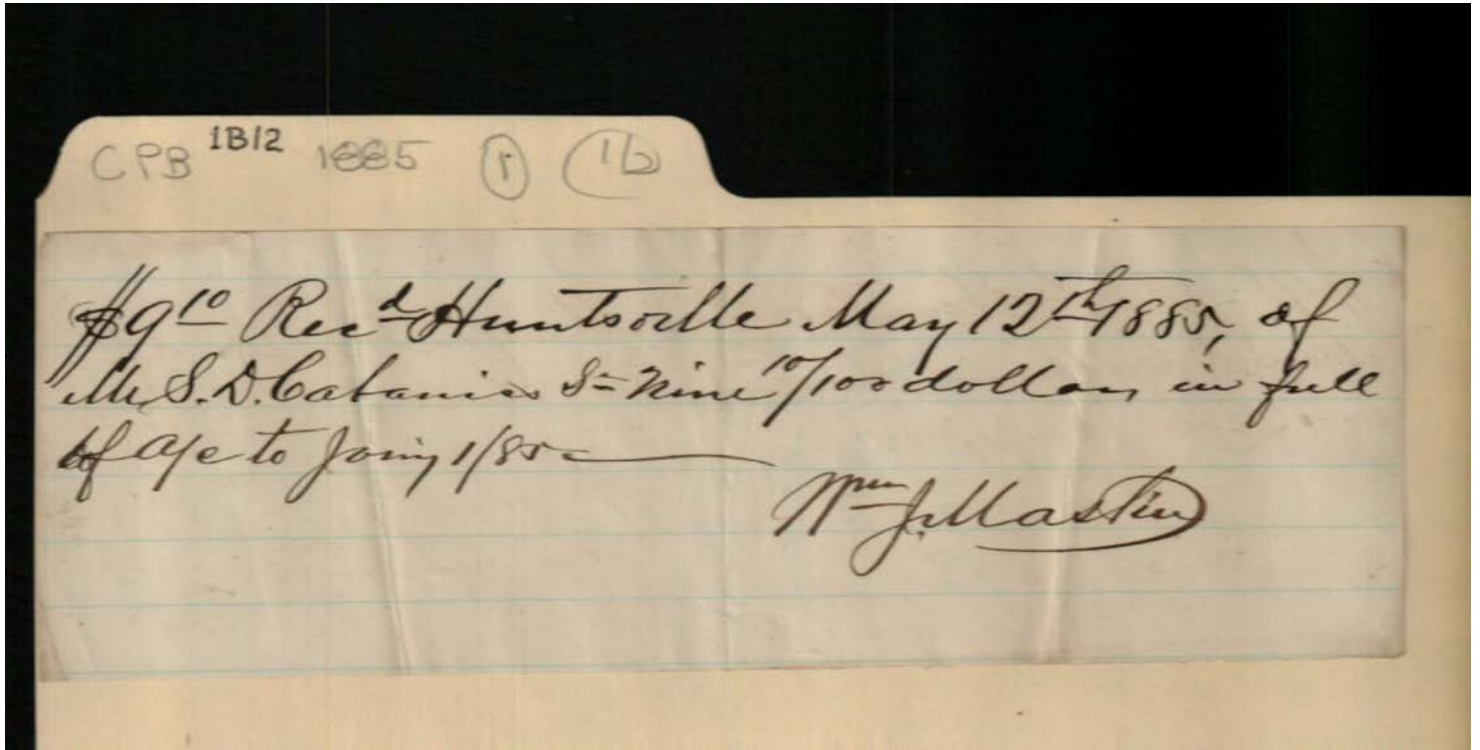 CPB 1B12 1885 1 1b
$9 10 Recd Huntsville May 12th 1885, of
Mr S. D. Cabaniss Sr Nine 10/100 dollars in full
of a/c to Jany 1/85
Wm J. Mastin